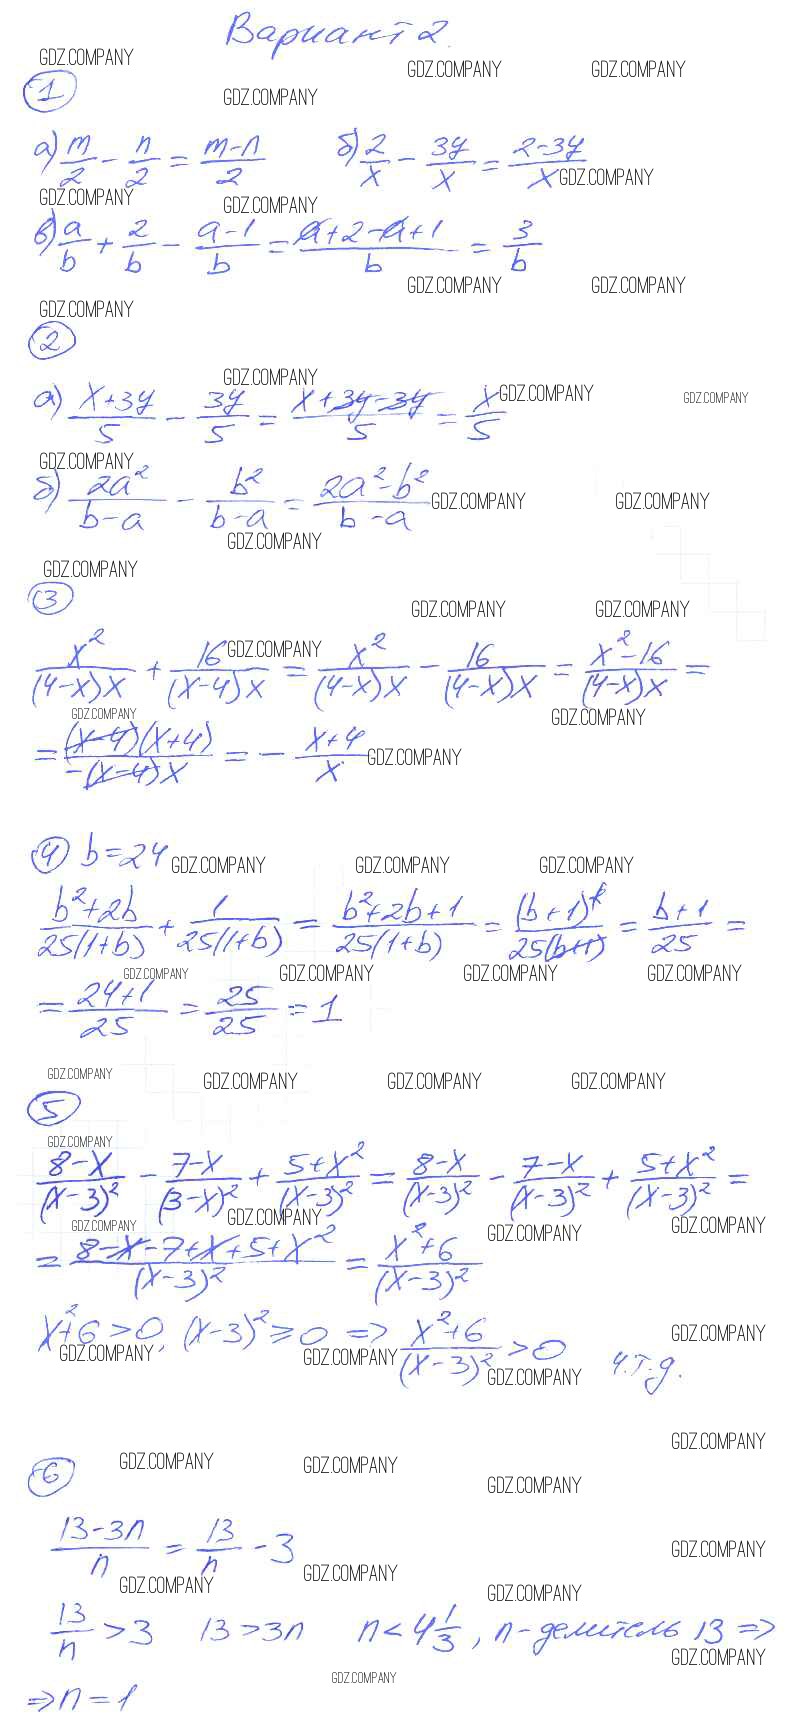 Вариант 2.
GDZ.COMPANY GDZ.COMPANY GDZ.COMPANY
① GDZ.COMPANY
а) m/2 - n/2 = (m-n)/2 б) 2/x - 3y/x = (2-3y)/x GDZ.COMPANY
GDZ.COMPANY GDZ.COMPANY
в) a/b + 2/b - (a-1)/b = (a+2-a+1)/b = 3/b
GDZ.COMPANY GDZ.COMPANY
GDZ.COMPANY
②
GDZ.COMPANY
а) (x+3y)/5 - 3y/5 = (x+3y-3y)/5 = x/5 GDZ.COMPANY GDZ.COMPANY
GDZ.COMPANY
б) 2a²/(b-a) - b²/(b-a) = (2a²-b²)/(b-a) GDZ.COMPANY GDZ.COMPANY
GDZ.COMPANY
GDZ.COMPANY
③ GDZ.COMPANY GDZ.COMPANY
x²/((4-x)x) + 16/((x-4)x) GDZ.COMPANY = x²/((4-x)x) - 16/((4-x)x) = (x²-16)/((4-x)x) =
GDZ.COMPANY GDZ.COMPANY
= ((x-4)(x+4))/(-(x-4)x) = - (x+4)/x GDZ.COMPANY
④ b=24 GDZ.COMPANY GDZ.COMPANY GDZ.COMPANY
(b²+2b)/(25(1+b)) + 1/(25(1+b)) = (b²+2b+1)/(25(1+b)) = (b+1)²/(25(b+1)) = (b+1)/25 =
GDZ.COMPANY GDZ.COMPANY GDZ.COMPANY GDZ.COMPANY
= (24+1)/25 = 25/25 = 1
GDZ.COMPANY GDZ.COMPANY GDZ.COMPANY GDZ.COMPANY
⑤
GDZ.COMPANY
(8-x)/(x-3)² - (7-x)/(3-x)² + (5+x²)/(x-3)² = (8-x)/(x-3)² - (7-x)/(x-3)² + (5+x²)/(x-3)² =
GDZ.COMPANY GDZ.COMPANY GDZ.COMPANY GDZ.COMPANY
= (8-x-7+x+5+x²)/(x-3)² = (x²+6)/(x-3)²
x²+6>0, (x-3)²≥0 => (x²+6)/(x-3)² > 0 ч.т.д. GDZ.COMPANY
GDZ.COMPANY GDZ.COMPANY GDZ.COMPANY
GDZ.COMPANY
⑥ GDZ.COMPANY GDZ.COMPANY GDZ.COMPANY
(13-3n)/n = 13/n - 3 GDZ.COMPANY
GDZ.COMPANY GDZ.COMPANY GDZ.COMPANY
13/n > 3 13>3n n<4 1/3, n-делитель 13 =>
GDZ.COMPANY
GDZ.COMPANY
=> n=1